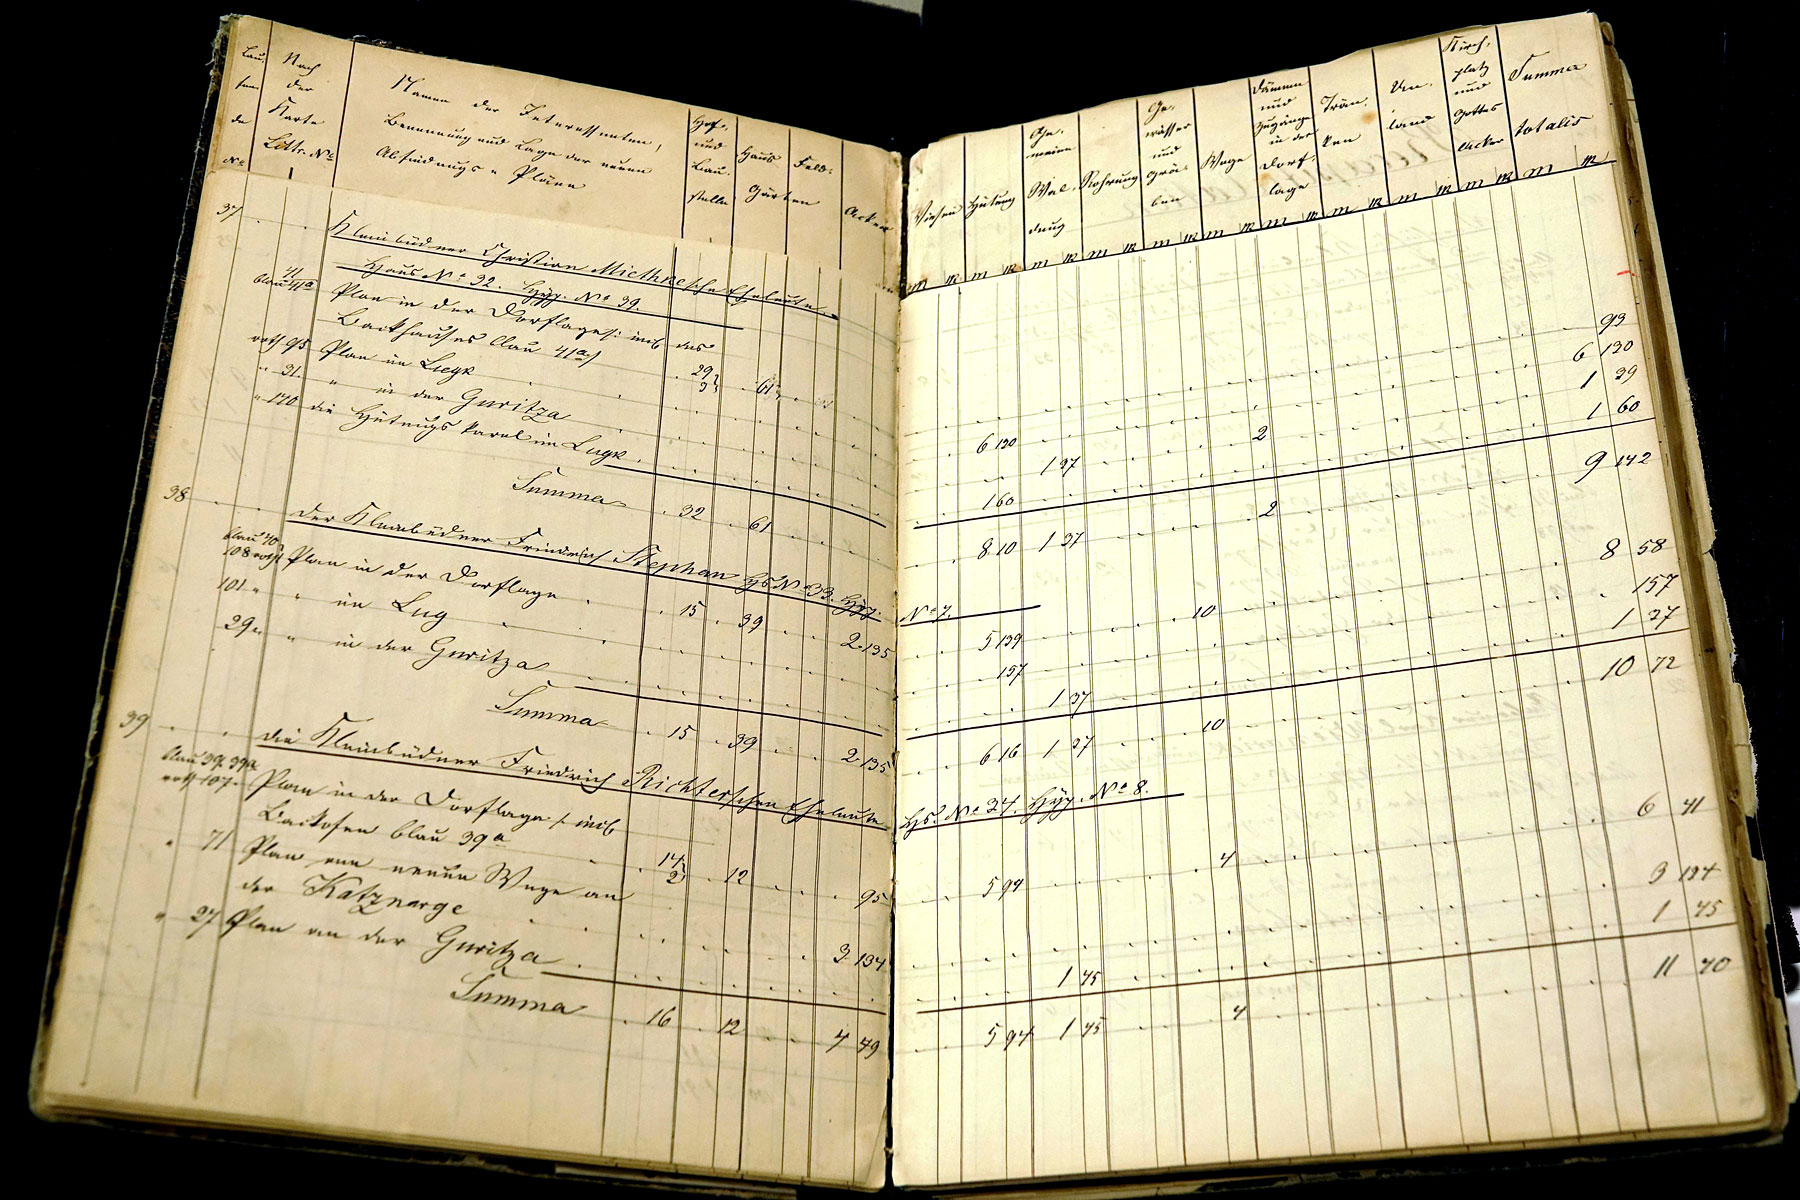 Lau- Nach Namen der Interessenten, Hof- Haus Feld- Acker
fen- der Benennung und Lage der neuen und Gärten
de Karte Abfindungs-Pläne Bau-
No Littr. No stelle
Wiesen Hütung Ge- Rohrung Ge- Wege Dämme Trän- Un- Kirch- Summa
meine wässer und ken land platz totalis
Wal- und Zugänge und
dung grä- in der Gottes
ben Dorf- Acker
lage
M R M R M R M R M R M R M R M R M R M R
37 Kleinbüdner Christian Miethkesche Eheleute.
Haus No 32. Hyp. No 39.
41
blau 41a Plan in der Dorflage /: incl. des
Backhauses blau 41a :/ 29 3 61 93
roth 95 Plan im Liegk 6 120 6 120
" 31 " in der Guritza 1 37 2 1 39
" 170 die Hütungskavel im Lugk 160 1 60
Summa 32 61 8 10 1 37 2 9 142
38 der Kleinbüdner Friedrich Stephan Hs No 33. Hyp. No 7.
blau 40
108 roth Plan in der Dorflage 15 39 2 135 5 139 10 8 58
101 " " im Lug 157 157
29 " " in der Guritza 1 37 1 37
Summa 15 39 2 135 6 16 1 37 10 10 72
39 die Kleinbüdner Friedrich Richterschen Eheleute Hs. No 34. Hyp. No 8.
blau 39. 39a
roth 107 Plan in der Dorflage /: incl.
Backofen blau 39a 14 2 12 95 5 94 4 6 41
" 71 Plan am neuen Wege an
der Katznarge 3 134 3 134
" 27 Plan an der Guritza 1 45 1 45
Summa 16 12 4 49 5 94 1 45 4 11 70